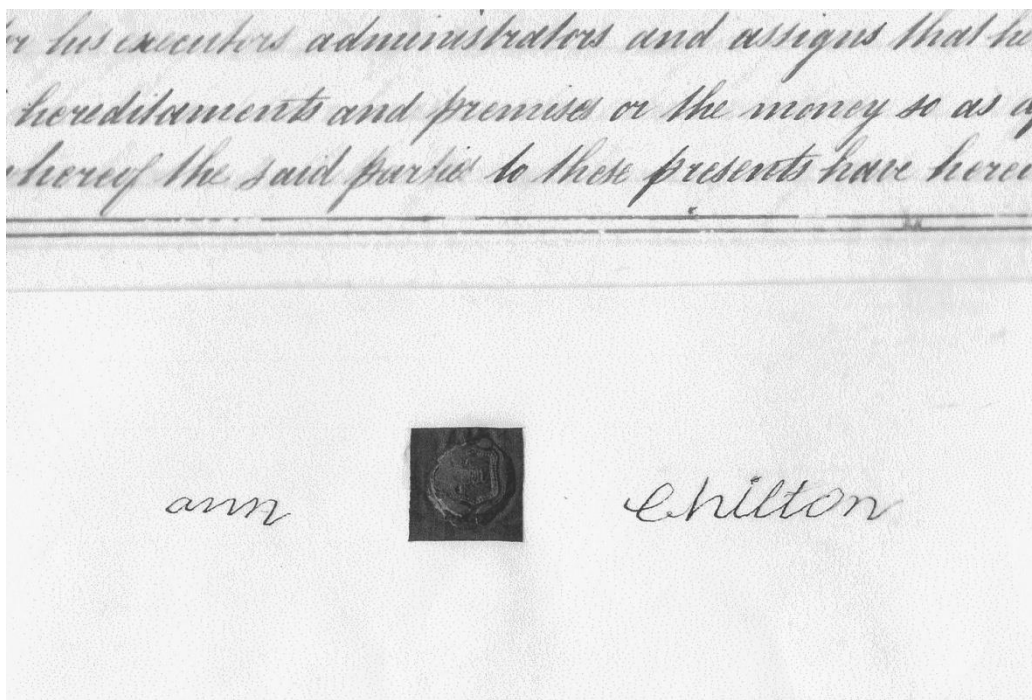 his executors administrators and assigns that he
hereditaments and premises or the money so as
whereof the said parties to these presents have
ann Chilton